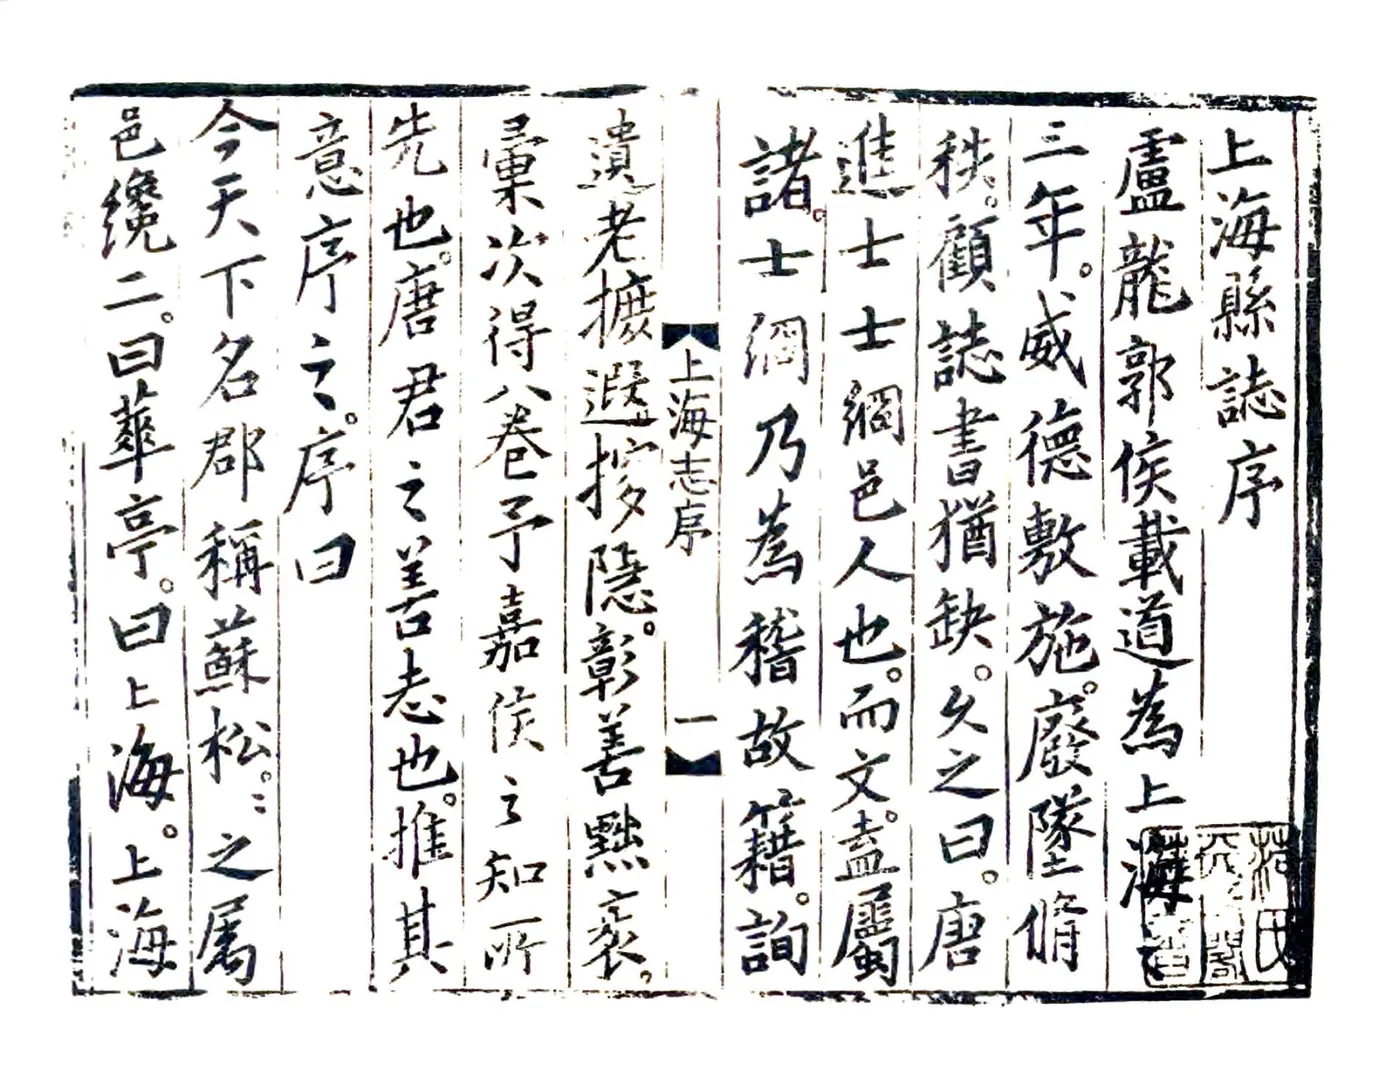 上海縣誌序
盧龍郭侯載道為上海
三年。威德敷施。廢墜脩
秩。顧誌書猶缺。久之曰。唐
進士士綱邑人也。而文。盍屬
諸。士綱乃為稽故籍。詢
上海志序
一
遺老摭遐撈隱。彰善黜衺。
彙次得八卷予嘉侯之知所
先也。唐君之善志也。推其
意序之。序曰
今天下名郡稱蘇松。〻之属
邑纔二。曰華亭。曰上海。上海